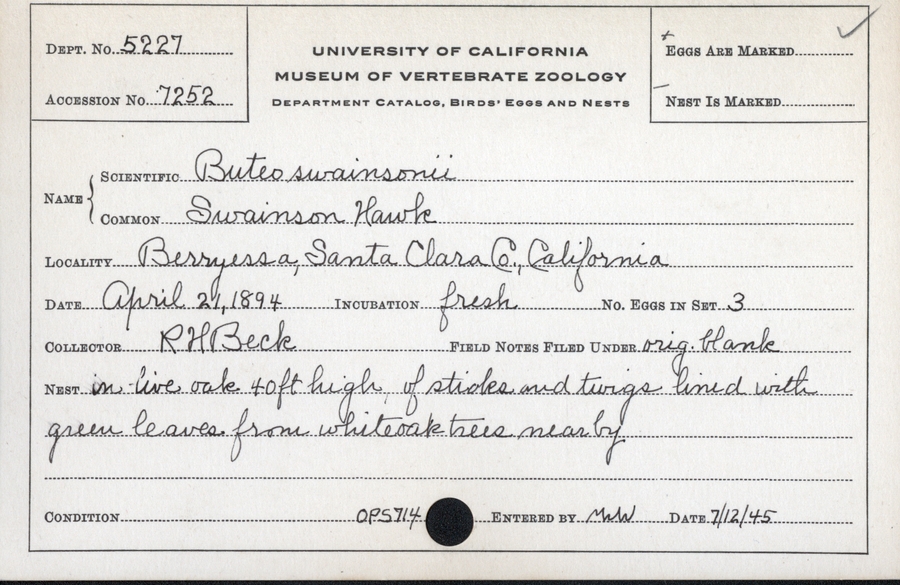 DEPT. No. 5227
ACCESSION No. 7252
UNIVERSITY OF CALIFORNIA
MUSEUM OF VERTEBRATE ZOOLOGY
DEPARTMENT CATALOG, BIRDS' EGGS AND NESTS
+ EGGS ARE MARKED ✓
– NEST IS MARKED
NAME { SCIENTIFIC Buteo swainsonii
COMMON Swainson Hawk
LOCALITY Berryessa, Santa Clara Co., California
DATE April 21, 1894 INCUBATION fresh No. EGGS IN SET 3
COLLECTOR R H Beck FIELD NOTES FILED UNDER orig. blank
NEST in live oak 40ft high, of sticks and twigs lined with
green leaves from whiteoak trees nearby
CONDITION OPS714 ENTERED BY DATE 7/12/45